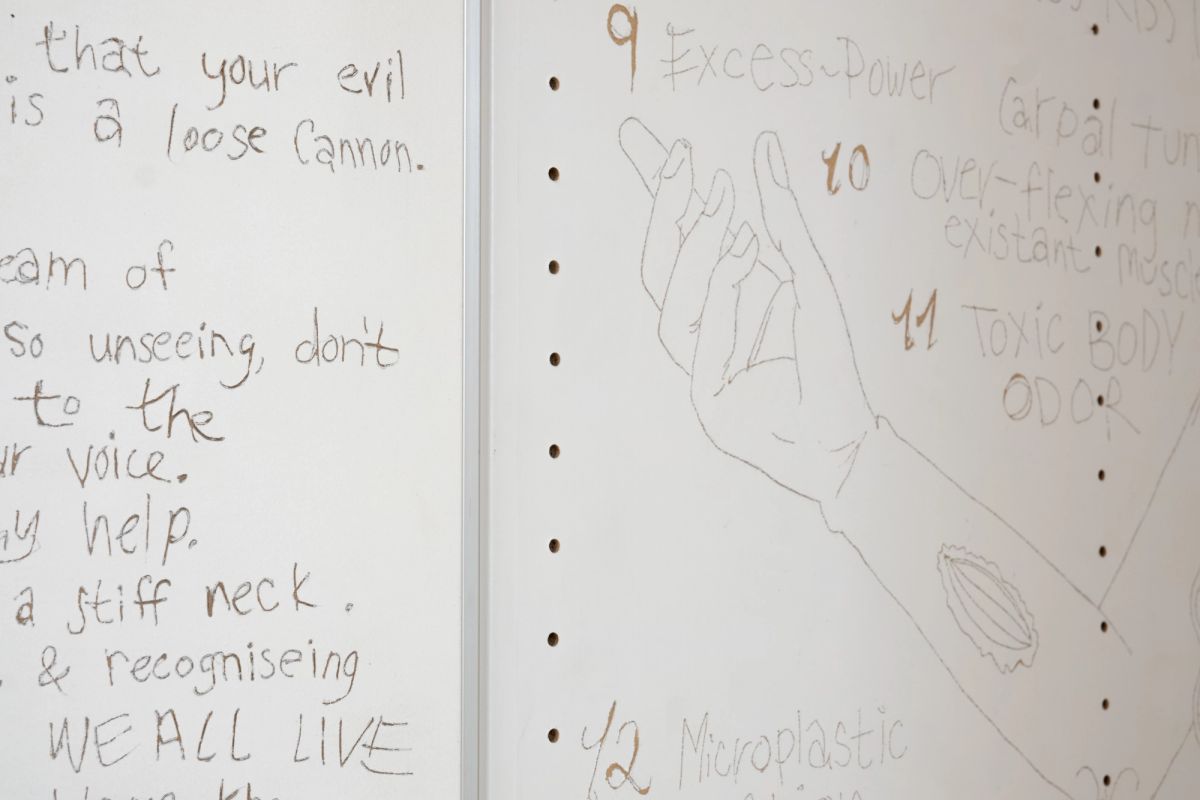 that your evil
is a loose Cannon.
of
so unseeing, don't
to the
voice.
help.
a stiff neck.
& recogniseing
WE ALL LIVE
9 Excess~Power
Carpal
10 Over-flexing
existant
11 TOXIC BODY
ODOR
12 Microplastic